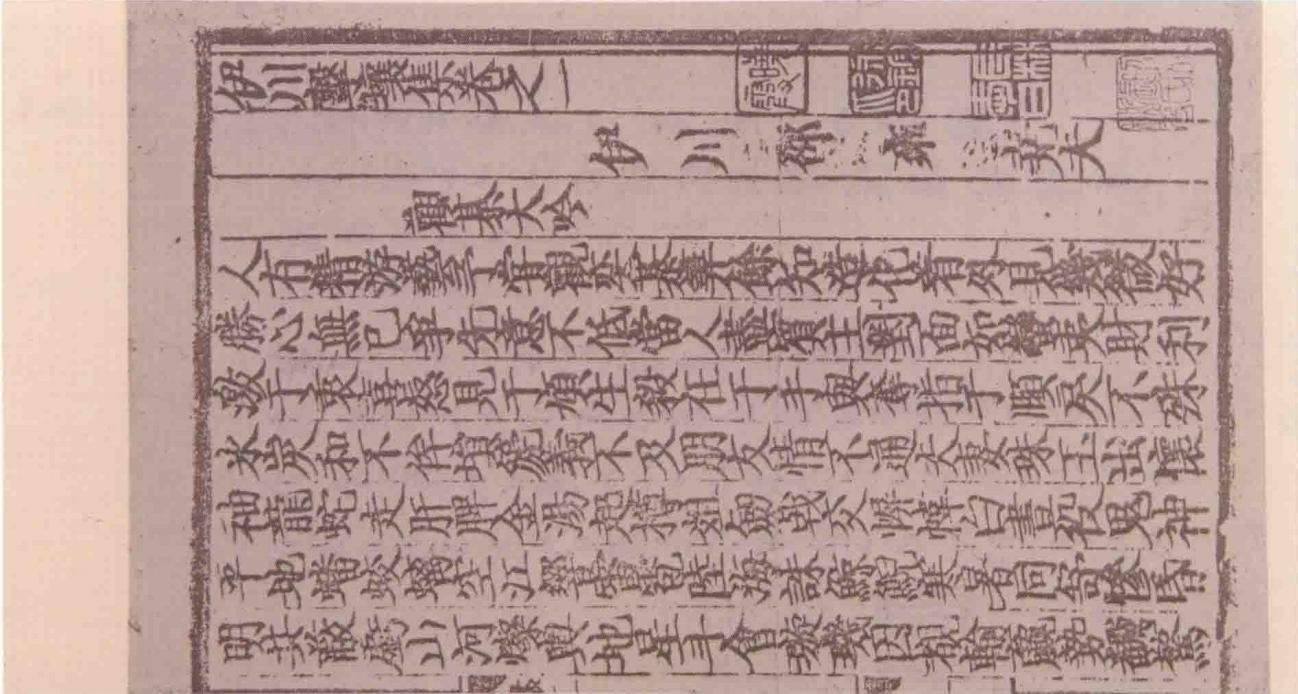 伊川擊壤集卷之一
伊川邵雍堯夫
觀棊大吟
人有精游藝予嘗觀弈棊筭餘知造化着外見幾微好
勝心無已爭先意不低當人盡賓主對面如蠻夷財利
激于衷喜怒見于頄生殺在于手與奪指于頤戾不殊
冰炭和不侔塤篪義不及朋友情不通夫妻珠玉出懷
袖龍蛇走肝脾金湯起樽俎劒戟交幈幃白晝役鬼神
平地蟠蛟螭空江響雷雹陸海誅鯨鯢寒暑同舒慘昏
明共蔽虧山河燦輿地星斗會璇璣因睹輸贏勢翻驚